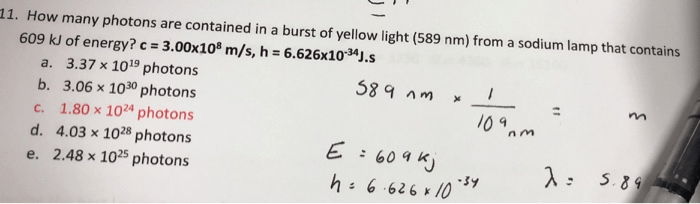 11. How many photons are contained in a burst of yellow light (589 nm) from a sodium lamp that contains
609 kJ of energy? c = 3.00x10⁸ m/s, h = 6.626x10⁻³⁴J.s
a. 3.37 × 10¹⁹ photons
b. 3.06 × 10³⁰ photons
c. 1.80 × 10²⁴ photons
d. 4.03 × 10²⁸ photons
e. 2.48 × 10²⁵ photons
589 nm × 1 / 10⁹ nm = m
E = 609 kJ
h = 6.626 × 10⁻³⁴ λ = 5.89